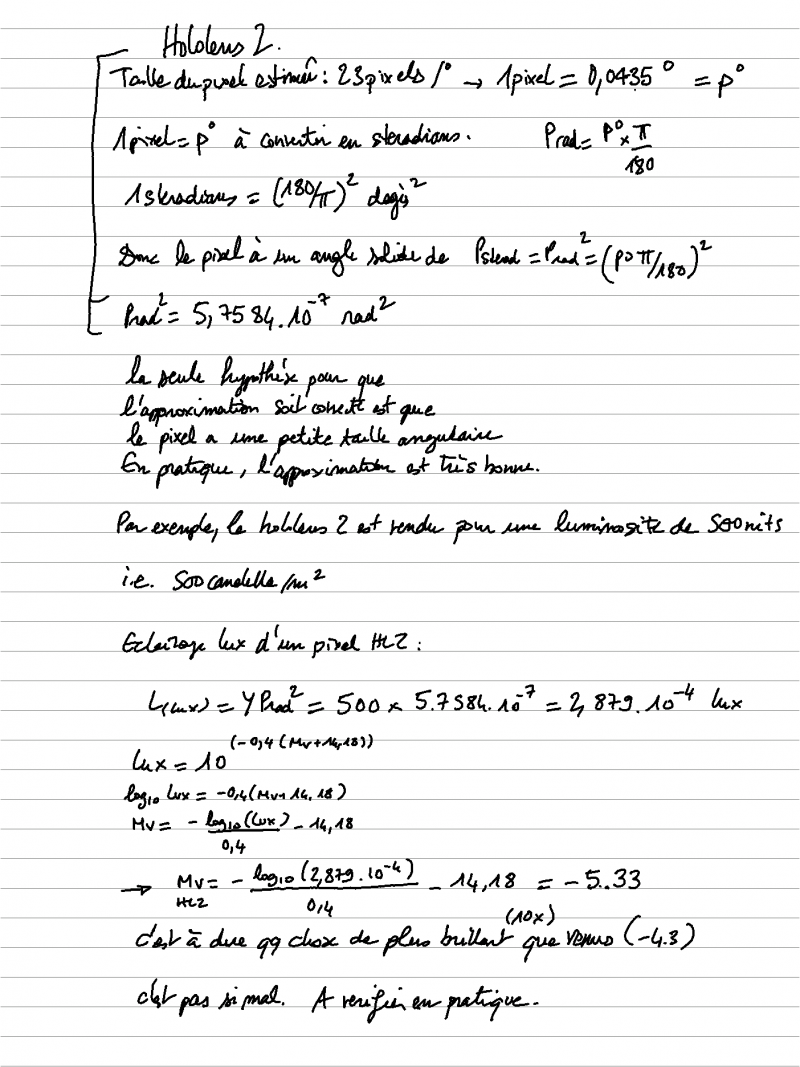 Hololens 2.
Taille du pixel estimée : 23 pixels/° → 1 pixel = 0,0435° = p°
1 pixel = p° à convertir en steradians. Prad = p° x π/180
1 steradians = (180/π)² degrés²
Donc le pixel à un angle solide de Psterad = Prad² = (p°π/180)²
Prad² = 5,7584.10⁻⁷ rad²
la seule hypothèse pour que
l'approximation soit correcte est que
le pixel a une petite taille angulaire
En pratique, l'approximation est très bonne.
Par exemple, le hololens 2 est vendu pour une luminosité de 500 nits
i.e. 500 candella/m²
Eclairage lux d'un pixel HL2 :
L(lux) = Y Prad² = 500 x 5.7584.10⁻⁷ = 2,879.10⁻⁴ lux
lux = 10^(-0,4(Mv+14,18))
log₁₀ lux = -0,4(Mv+14,18)
Mv = - log₁₀(lux)/0,4 - 14,18
→ Mv HL2 = - log₁₀(2,879.10⁻⁴)/0,4 - 14,18 = -5.33
c'est à dire qq chose de plus brillant (10x) que venus (-4.3)
c'est pas si mal. A verifier en pratique.